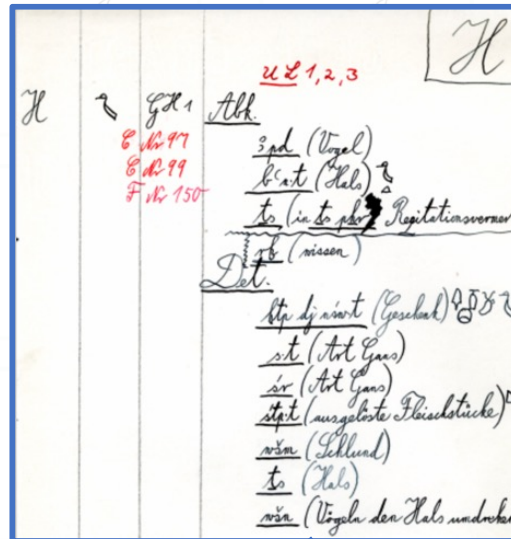 H
U L 1, 2, 3
H GH 1 Abk.
C Nr 97
C Nr 99
F Nr 150
ꜣpd (Vogel)
bꜥn·t (Hals)
ṯs (in ṯs pẖr Rezitationsvermer
rḫ (wissen)
Det.
ḥtp dj nśw·t (Geschenk)
s·t (Art Gans)
śr (Art Gans)
śtp·t (ausgelöste Fleischstücke)
wšm (Schlund)
ṯs (Hals)
wšn (Vögeln den Hals umdrehen